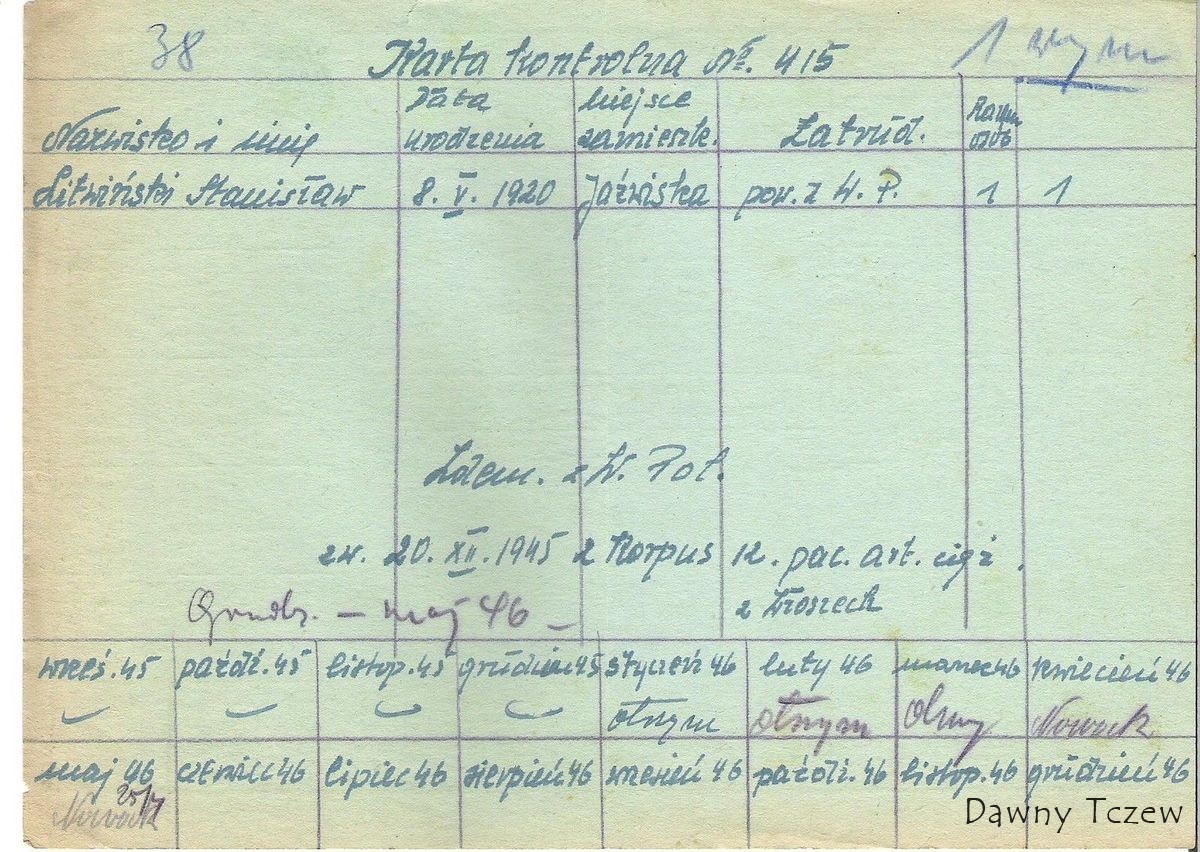 38 Karta kontrolna № 415 1
Nazwisko i imię Data urodzenia Miejsce zamieszk. Zatrud. osób
Litwiński Stanisław 8. V. 1920 Jaźwiska pow. z W. P. 1 1
Zdem. z W. Pol.
zw. 20. XII. 1945 2 Korpus 12. pac. art. cięż.
z Włoszech
Grudz. — maj 46 —
wrześ. 45 paźdź. 45 listop. 45 grudzień 45 styczeń 46 luty 46 marzec 46 kwiecień 46
otrzym otrzym Nowack
maj 46 czerwiec 46 lipiec 46 sierpień 46 wrzesień 46 paźdź. 46 listop. 46 grudzień 46
25/7
Nowack
Dawny Tczew